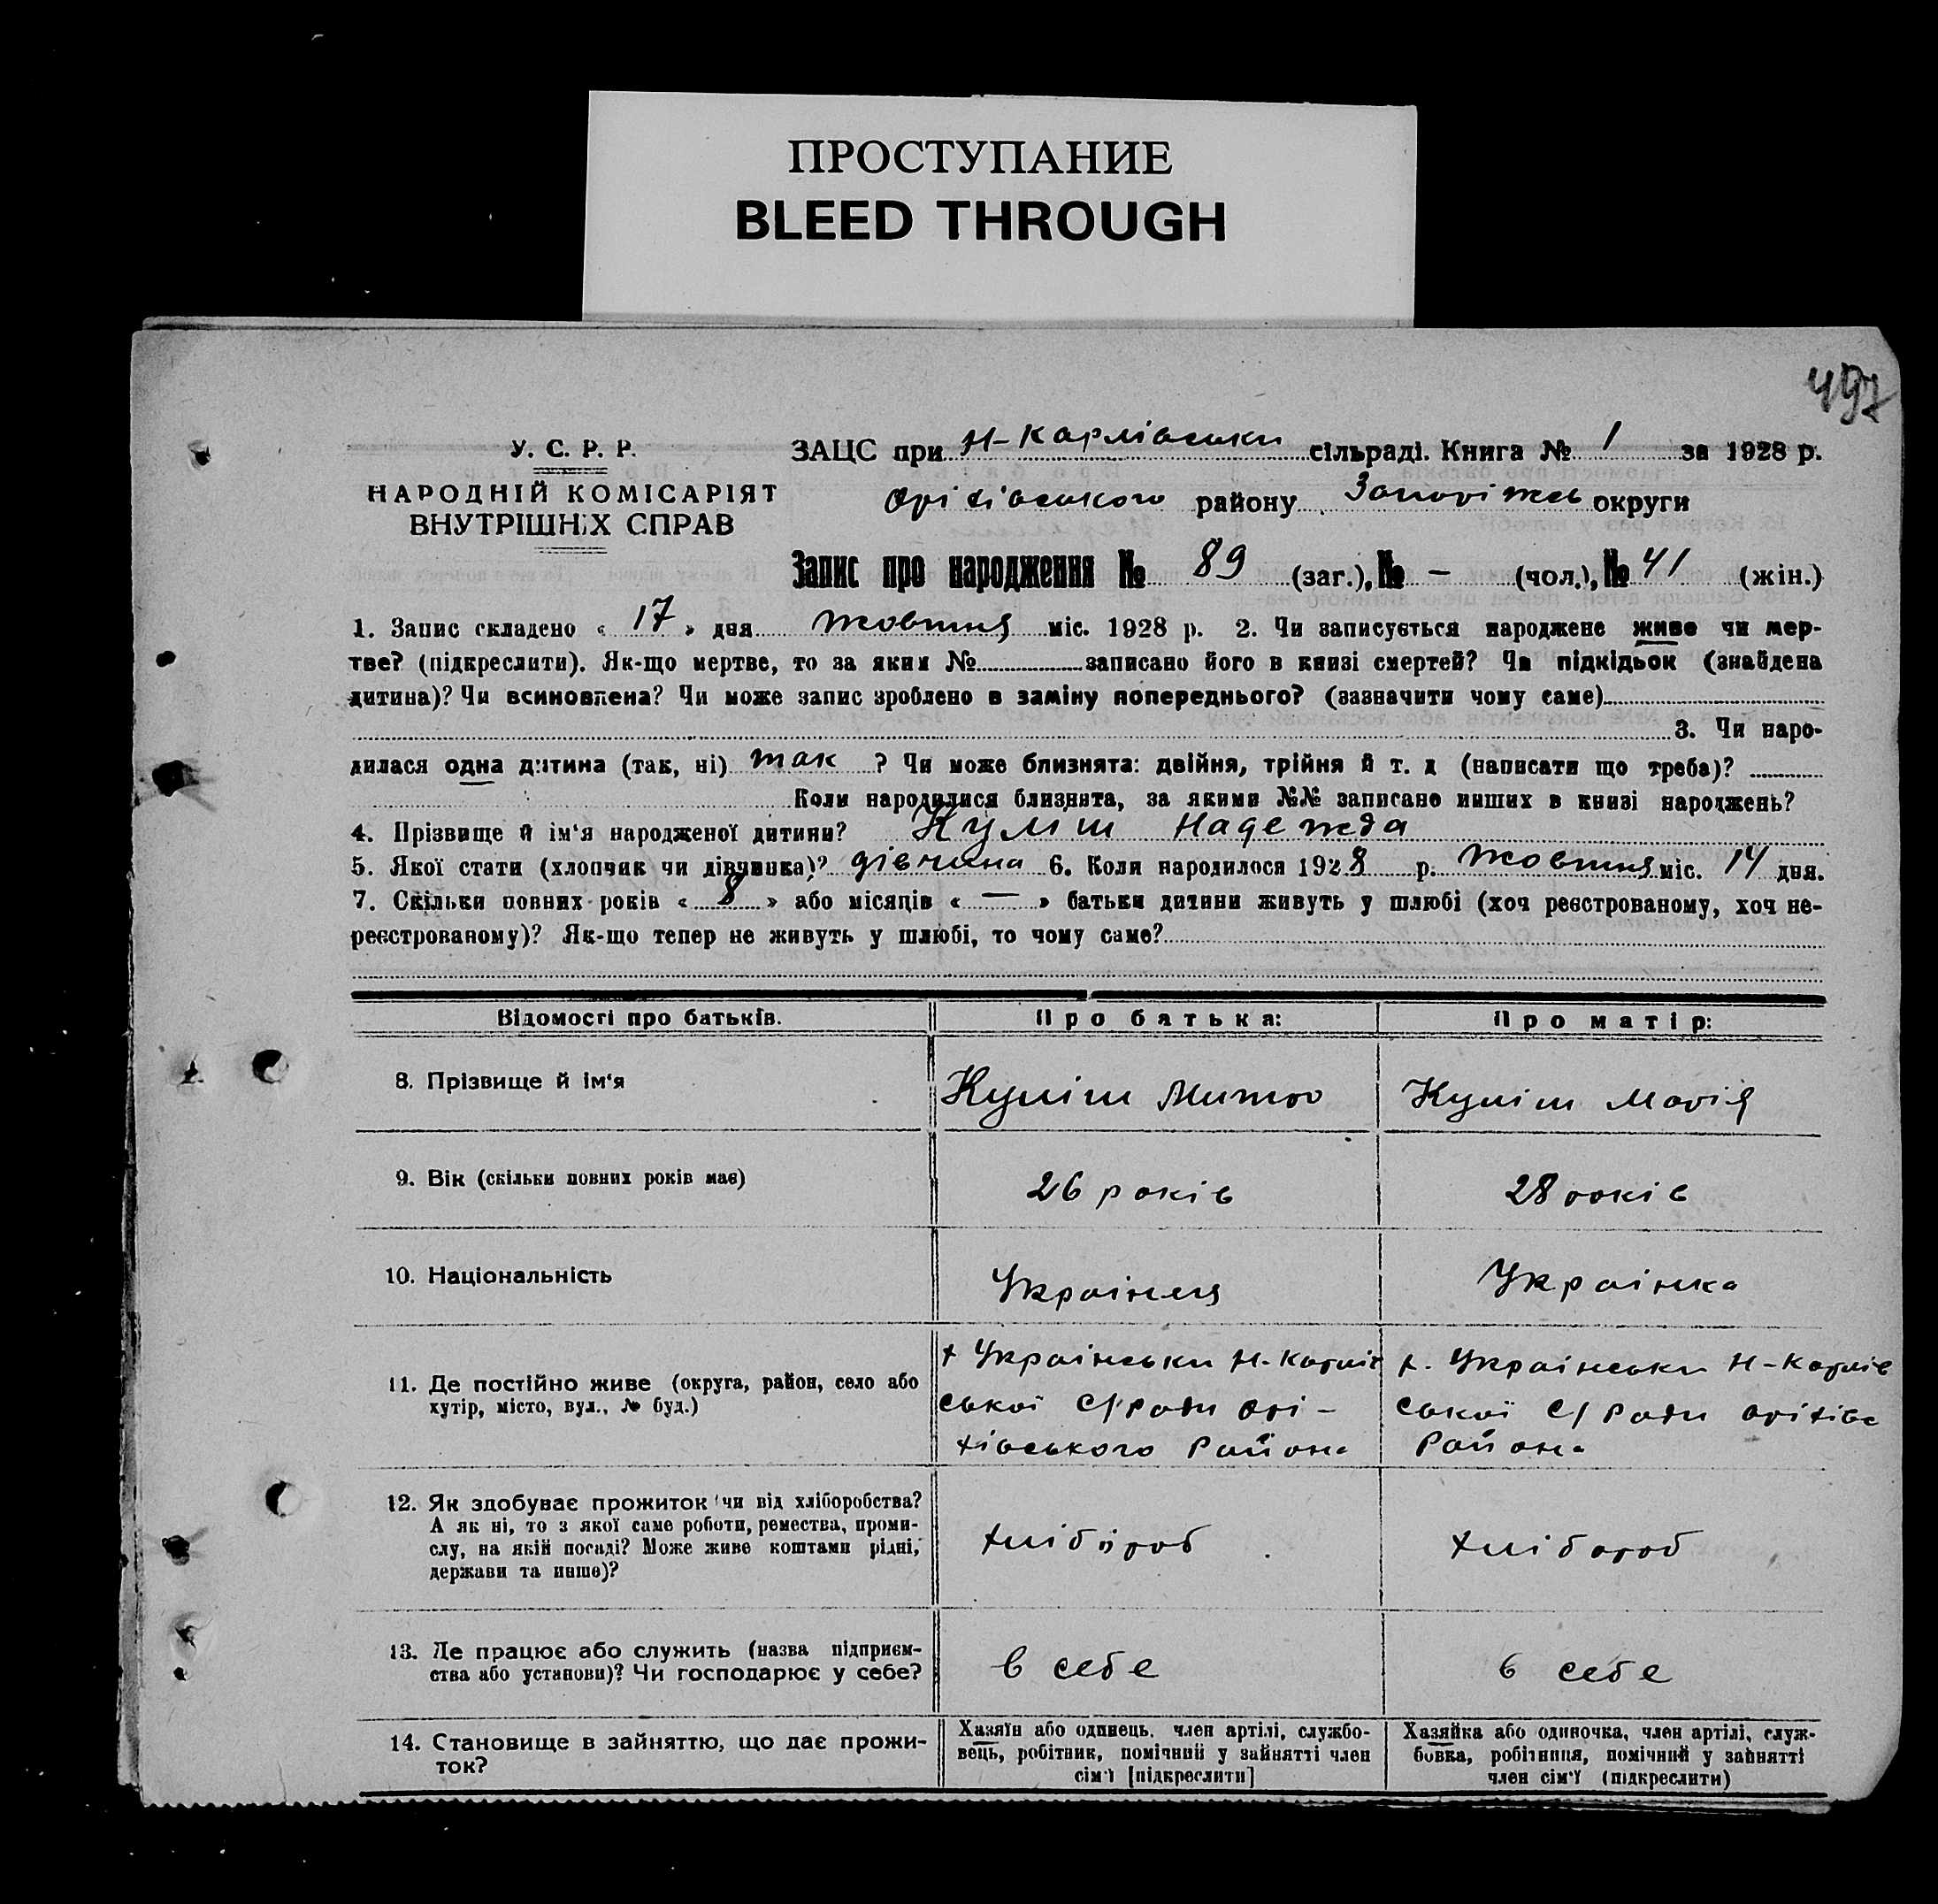 ПРОСТУПАНИЕ
BLEED THROUGH
497
У. С. Р. Р.
НАРОДНІЙ КОМІСАРІЯТ
ВНУТРІШНІХ СПРАВ
ЗАЦС при Н-Карлівськи сільраді. Книга № 1 за 1928 р.
Оріхівського району Запоріжсь округи
Запис про народження № 89 (заг.), № – (чол.), № 41 (жін.)
1. Запис складено « 17 » дня жовтня міс. 1928 р. 2. Чи записується народжене живе чи мер-
тве? (підкреслити). Як-що мертве, то за яким № записано його в книзі смертей? Чи підкідьок (знайдена
дитина)? Чи всиновлена? Чи може запис зроблено в заміну попереднього? (зазначити чому саме)
3. Чи наро-
дилася одна дитина (так, ні) так ? Чи може близнята: двійня, трійня й т. д (написати що треба)?
Коли народилися близнята, за якими №№ записано инших в книзі народжень?
4. Прізвище й ім'я народженої дитини? Куліш Надежда
5. Якої стати (хлопчик чи дівчинка)? дівчина 6. Коли народилося 1928 р. жовтня міс. 14 дня.
7. Скільки повних років « 8 » або місяців « — » батьки дитини живуть у шлюбі (хоч реєстрованому, хоч не-
реєстрованому)? Як-що тепер не живуть у шлюбі, то чому саме?
Відомості про батьків. Про батька: Про матір:
8. Прізвище й ім'я Куліш Митро Куліш Марія
9. Вік (скільки повних років має) 26 років 28 років
10. Національність Украінець Украінка
11. Де постійно живе (округа, район, село або
хутір, місто, вул., № буд.)
х Украінськи Н-Карлів
ської С/ради Орі-
хівського Района
х. Украінськи Н-Карлів
ської С/Ради Оріхівс
Района
12. Як здобуває прожиток чи від хліборобства?
А як ні, то з якої саме роботи, ремества, проми-
слу, на якій посаді? Може живе коштами рідні,
держави та инше)?
хлібороб хлібороб
13. Де працює або служить (назва підприєм-
ства або установи)? Чи господарює у себе?
в себе в себе
14. Становище в зайняттю, що дає прожи-
ток?
Хазяїн або одинець, член артілі, службо-
вець, робітник, помічний у зайнятті член
сім'ї [підкреслити]
Хазяйка або одиночка, член артілі, служ-
бовка, робітниця, помічний у зайнятті
член сім'ї (підкреслити)